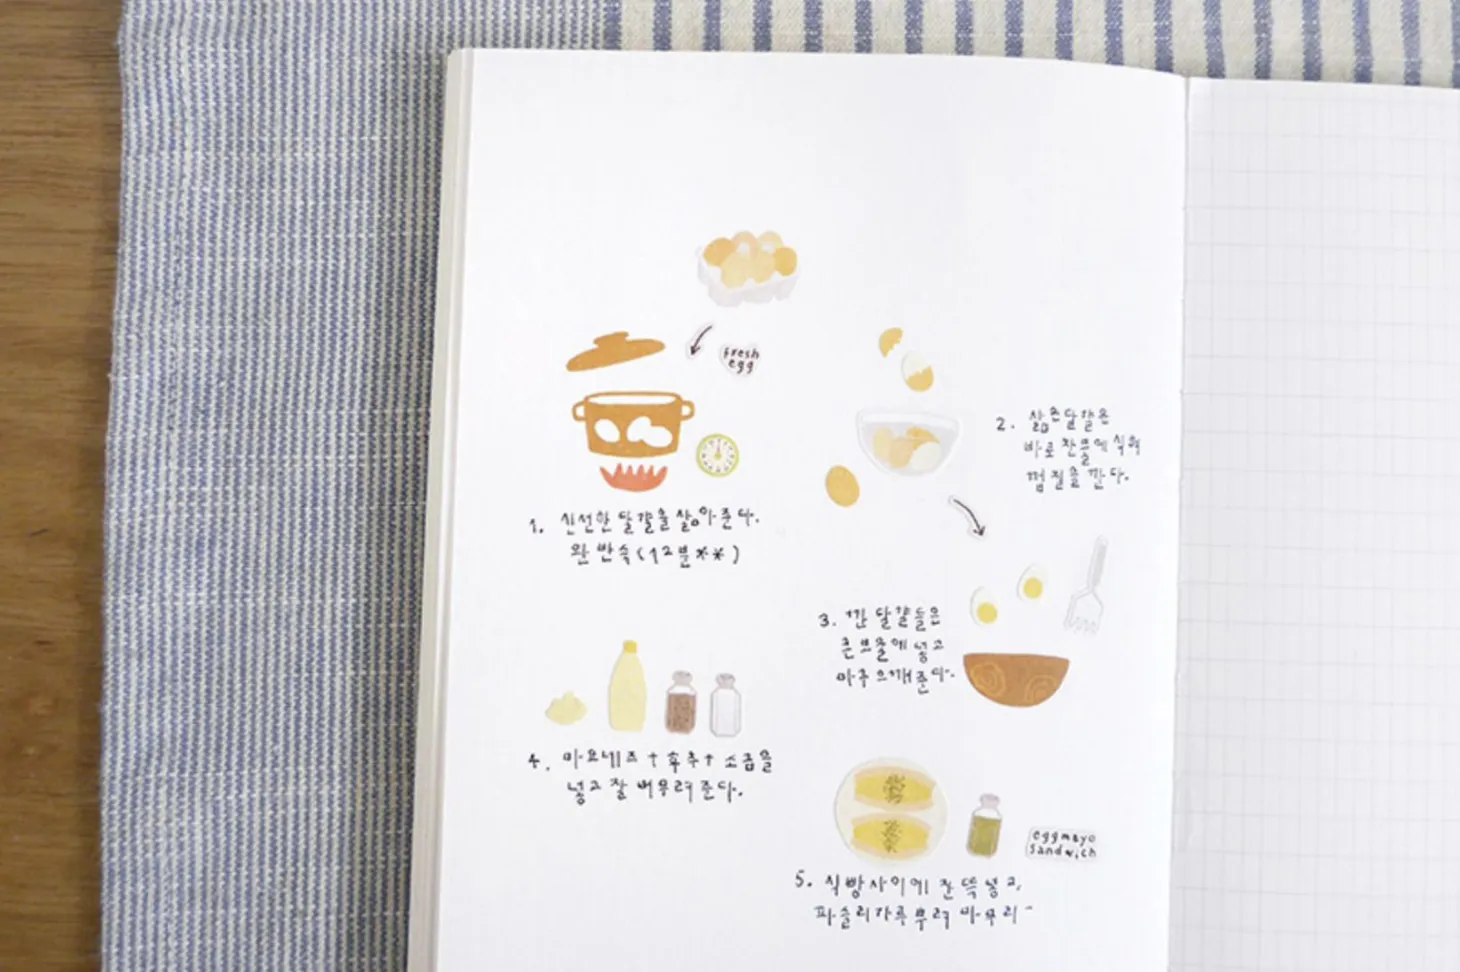 fresh
egg
1. 신선한 달걀을 삶아준다.
완반숙(12분**)
2. 삶은달걀은
바로 찬물에 식혀
껍질을 깐다.
3. 깐 달걀들은
큰 보울에 넣고
마구 으깨준다.
4. 마요네즈 + 후추 + 소금을
넣고 잘 버무려준다.
eggmayo
sandwich
5. 식빵사이에 잔뜩 넣고,
파슬리가루뿌려 마무리~